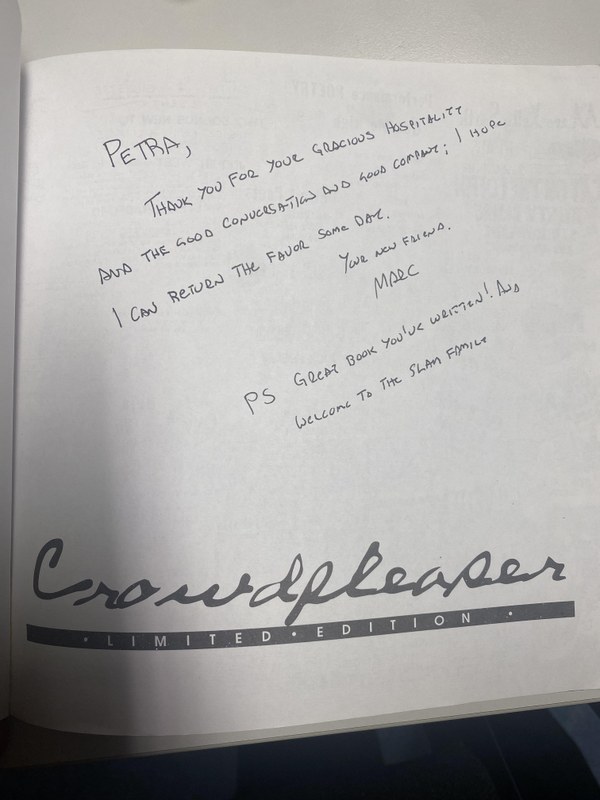 PETRA,
THANK YOU FOR YOUR GRACIOUS HOSPITALITY
AND THE GOOD CONVERSATION AND GOOD COMPANY; I HOPE
I CAN RETURN THE FAVOR SOME DAY.
YOUR NEW FRIEND.
MARC
PS GREAT BOOK YOU'VE WRITTEN! AND
WELCOME TO THE SLAM FAMILY
Crowdpleaser
• LIMITED • EDITION •